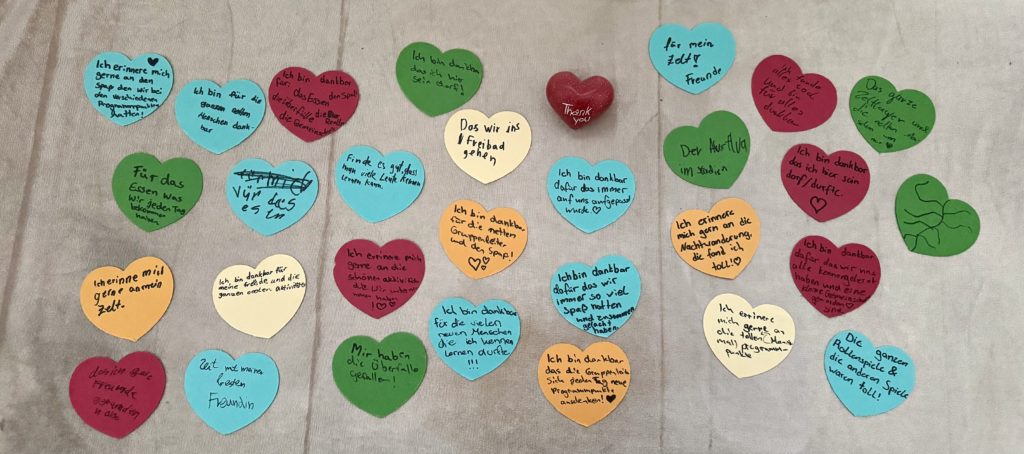 Ich erinnere mich
gerne an den
Spaß den wir bei
den verschiedenen
Programmpunkten
hatten!
Ich bin für die
ganzen
Menschen dank-
bar
Ich bin dankbar
für das Essen
den Spaß
die Überfälle die
die Gemeinschaft
Ich bin dankbar
das ich hir
sein darf!
Thank
you
für mein
Zelt!
Freunde
für alles
dankbar
Das ganze
Zeltlager und
die
Das wir ins
Freibad
gehen
Der
im stadion
Ich bin dankbar
das ich hier sein
darf/durfte.
Für das
Essen was
wir jeden Tag
bekommen
haben
Vür das
esen
Finde es gut, dass
man viele Leute kennen
lernen kann.
Ich bin dankbar
dafür das immer
auf uns aufgepasst
wurde
Ich bin dankbar
für die netten
Gruppenleiter
und den Spaß!
Ich erinnere
mich gern an die
Nachtwanderung,
die fand ich
toll!
Ich bin dankbar
dafür das wir uns
alle kennengelernt
haben und eine
sind
Ich erinne mich
gerne an mein
Zelt.
Ich bin dankbar für
meine Freunde und die
ganzen anderen aktivitäten
Ich erinnere mich
gerne an die
schönen aktivitäten
die wir unternommen
haben!
Ich bin dankbar
dafür das wir
immer so viel
spaß hatten
und zusammen
gelacht haben.
Ich bin dankbar
für die vielen
neuen Menschen
die ich kennen
lernen durfte
!!!
Ich erinnere
mich gerne an
die tollen
programm-
punkte
Die ganzen
Rollenspiele &
die anderen Spiele
waren toll!
das ich gute
Freunde
gefunden
habe
Zeit mit meiner
besten
Freundin
Mir haben
die Überfälle
gefallen!
Ich bin dankbar
das die Gruppenleiter
sich jeden Tag neue
Programmpunkte
ausdenken!